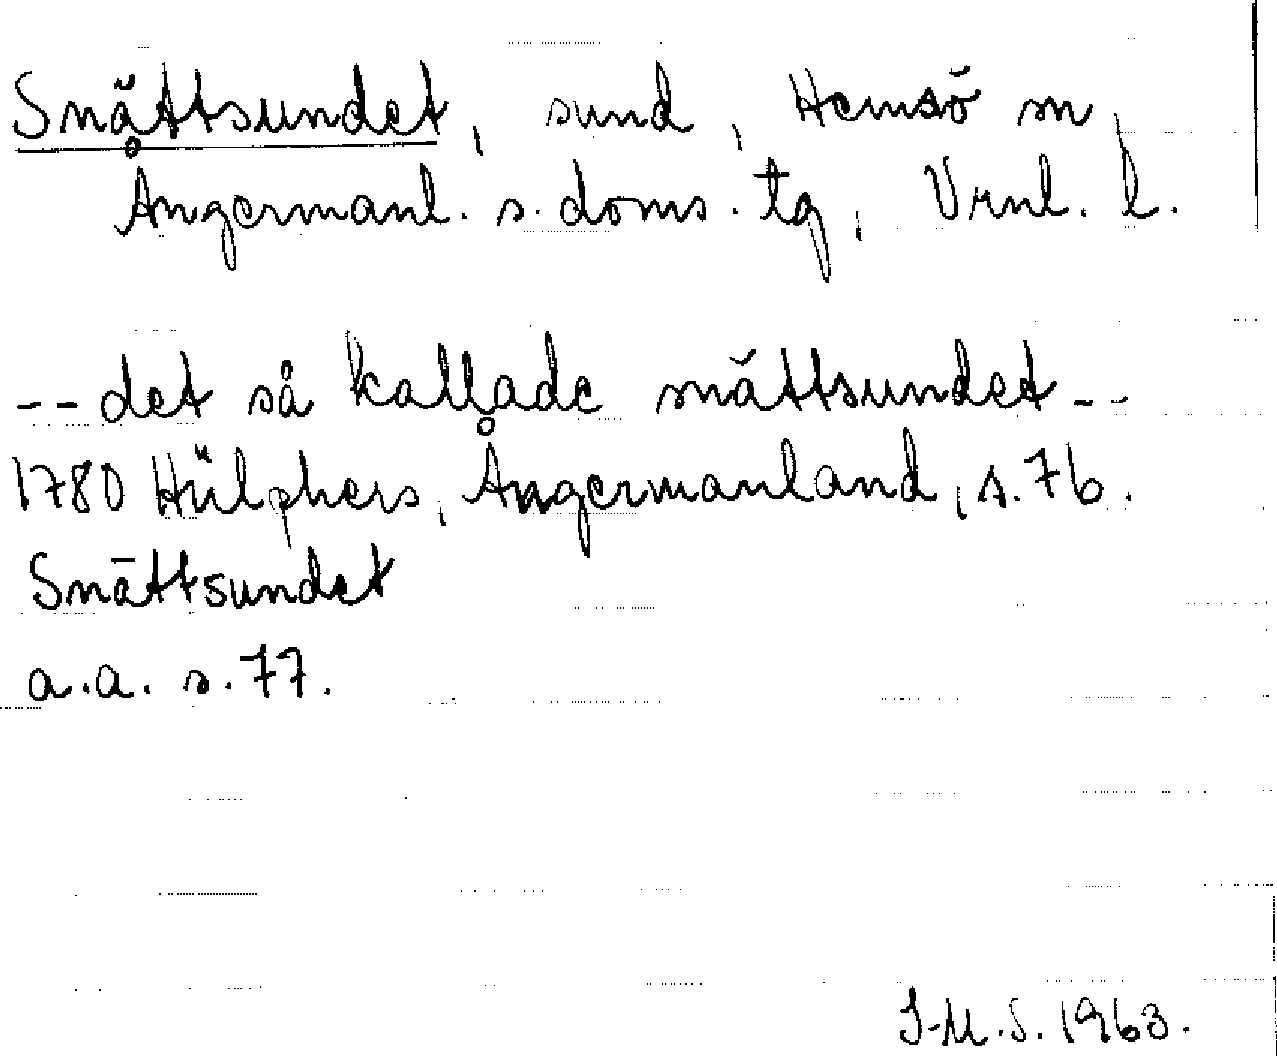 Snättsundet, sund, Hemsö sn,
Ångermanl. s. doms. tg, Vrnl. l.
-- det så kallade snättsundet --
1780 Hülphers, Ångermanland, s. 76.
Snättsundet
a.a. s. 77.
I-M.S. 1963.